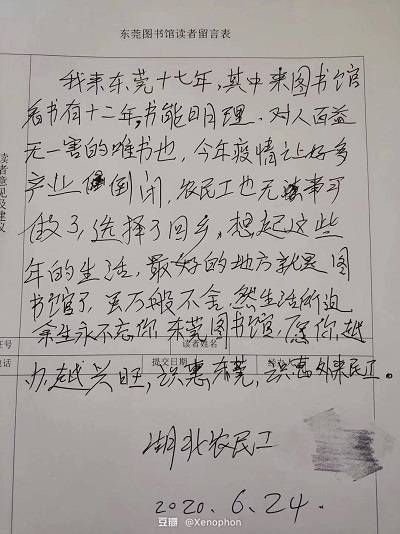 东莞图书馆读者留言表
我来东莞十七年,其中来图书馆
看书有十二年,书能明理,对人百益
无一害的唯书也,今年疫情让好多
产业倒闭,农民工也无事可
做了,选择了回乡,想起这些
年的生活,最好的地方就是图
书馆了,虽万般不舍,然生活所迫
余生永不忘你,东莞图书馆,愿你越
办越兴旺,识惠东莞,识惠外来民工。
读者意见及建议
证号
读者姓名
电话
提交日期
湖北农民工
2020.6.24.
豆瓣 @Xenophon